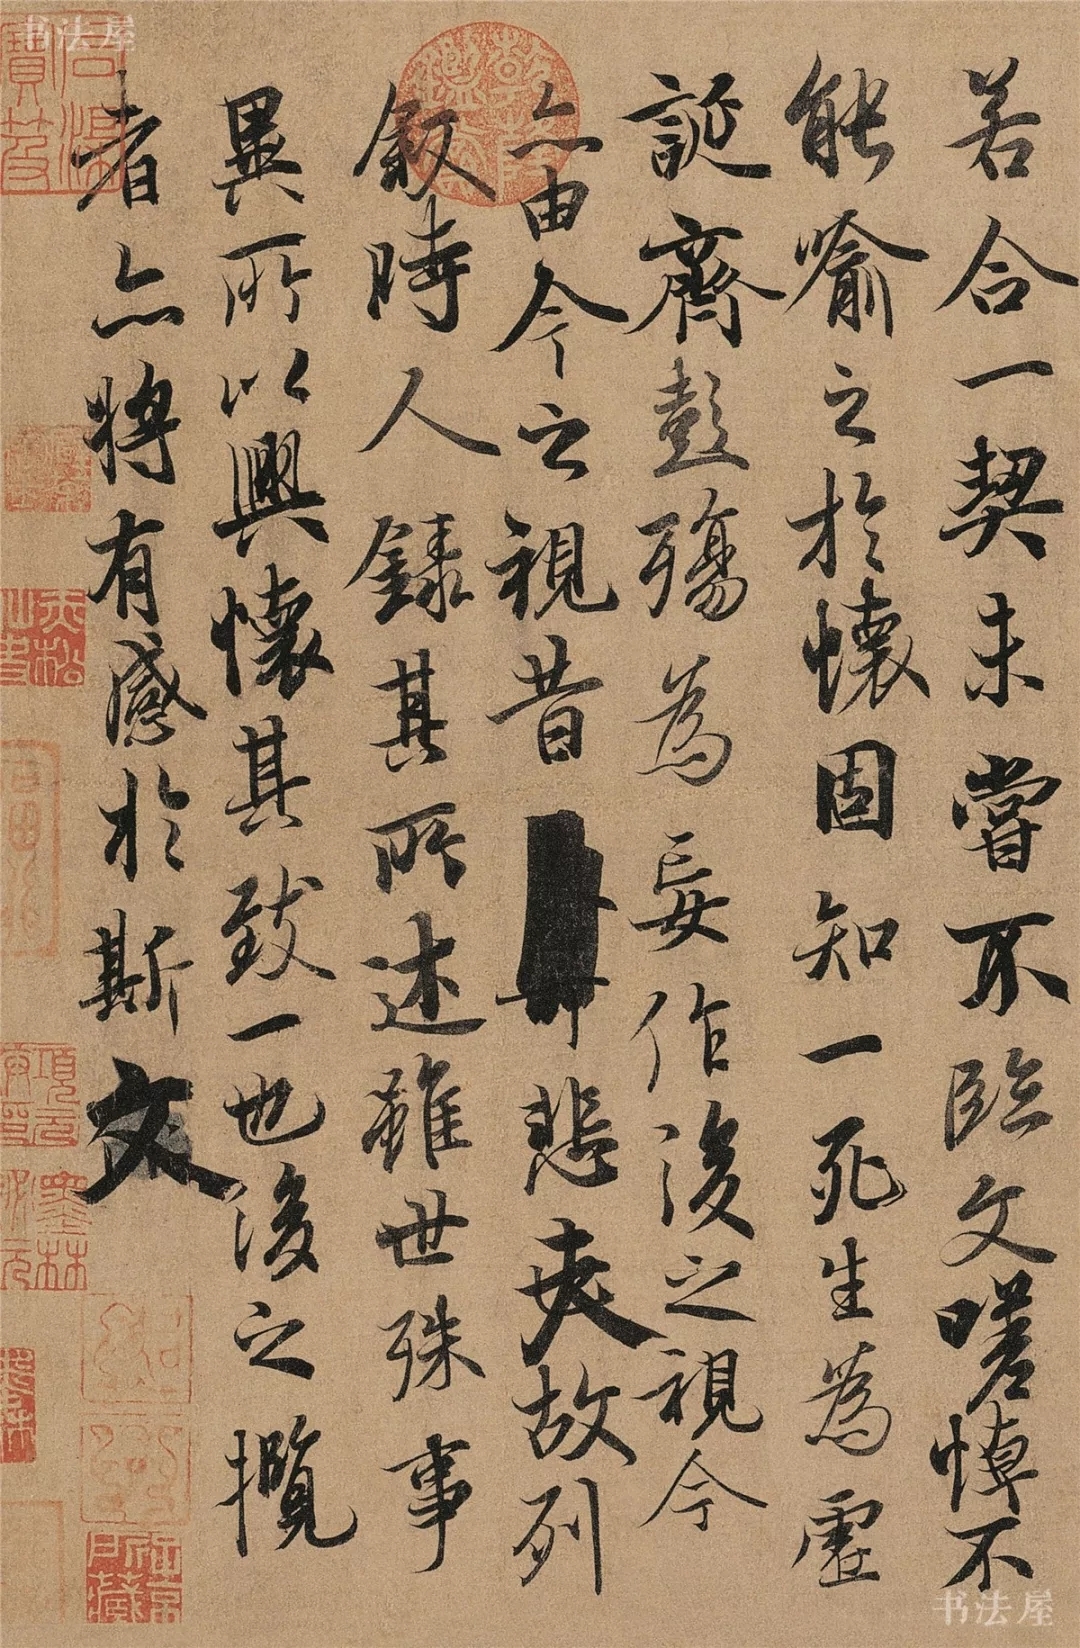 若合一契未嘗不臨文嗟悼不
能喻之於懷固知一死生為虛
誕齊彭殤為妄作後之視今
亦由今之視昔悲夫故列
敘時人錄其所述雖世殊事
異所以興懷其致一也後之攬
者亦將有感於斯文
书法屋
书法屋